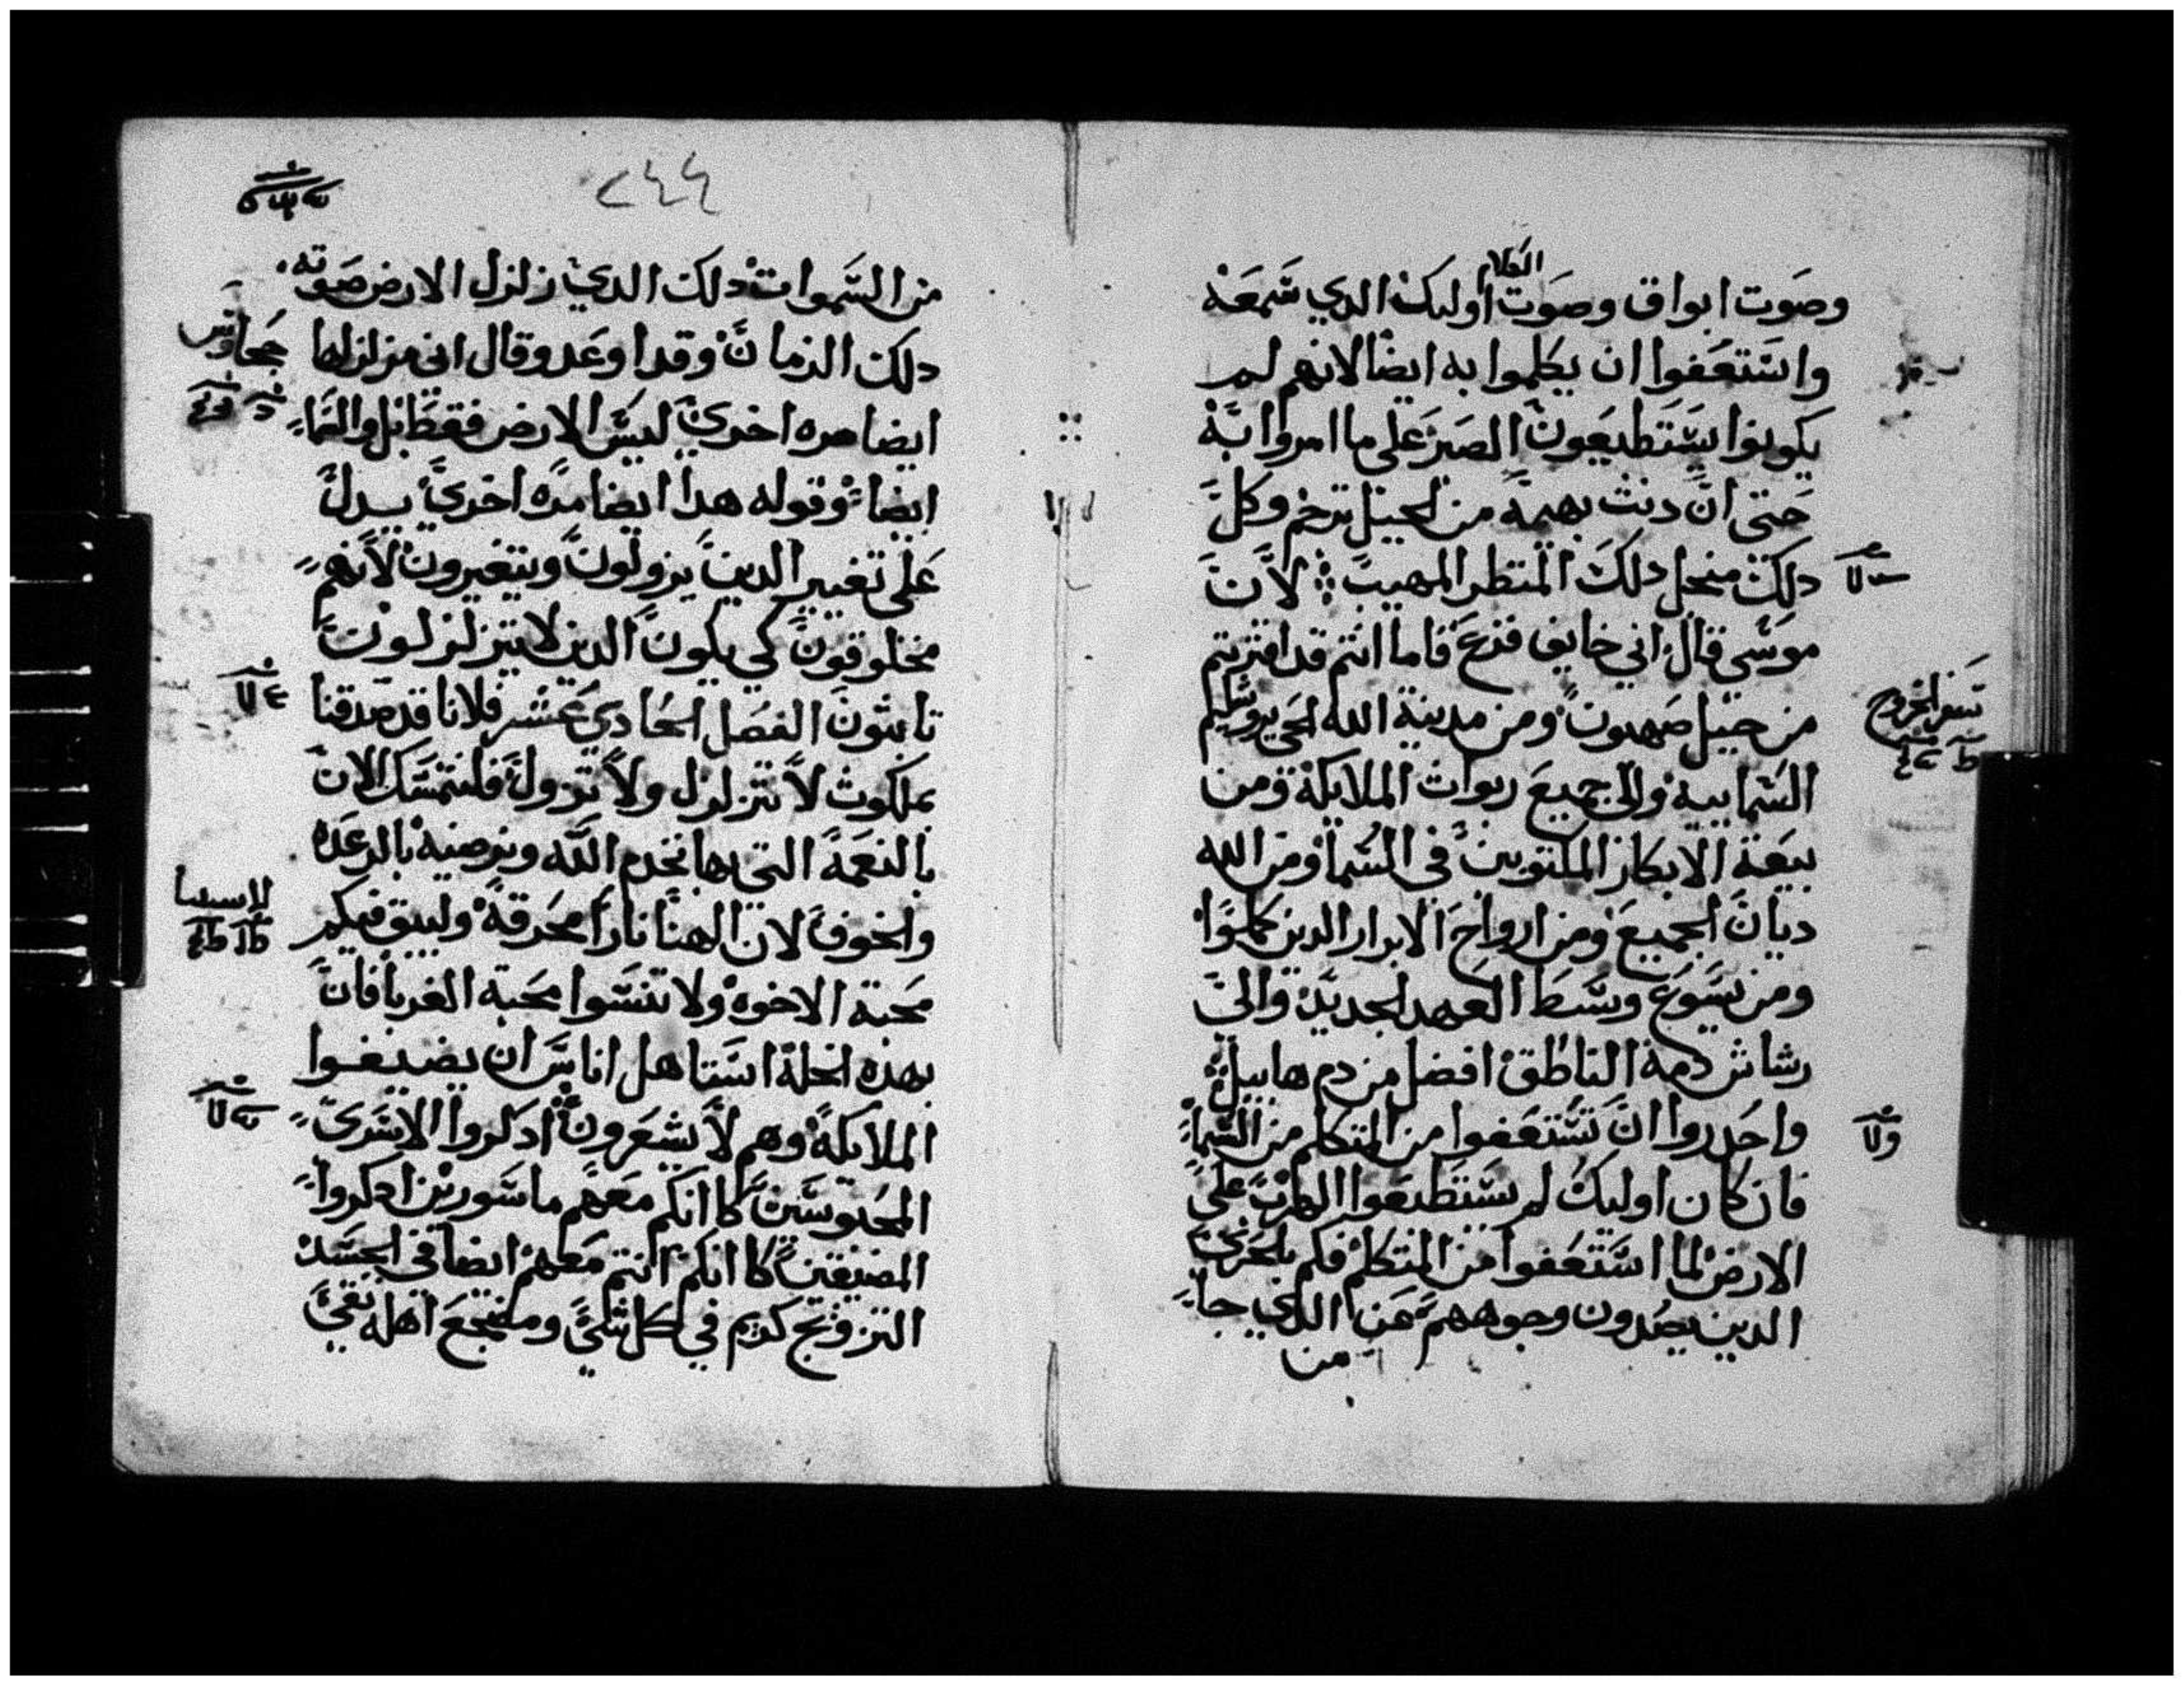 الكلام
وصوت ابواق وصوت اوليك الدي سمعه
واستعفوا ان يكلموا به ايضا لانهم لم
يكونوا يستطيعون الصبر على ما امروا به
حتى ان دنت بهيمة من الجبل ترجم وكل
دلك منحل دلك المنظر المهيب لان
موسى قال اني خايف فزع فاما انتم قد اقتربتم
من جبل صهيون ومن مدينة الله الحي يروشليم
السمايية والى جميع ربوات الملايكة ومن
بيعة الابكار المكتوبين في السما ومن الله
ديان الجميع ومن ارواح الابرار الدين كملوا
ومن يسوع وسط العهد الجديد والى
رشاش دمة الناطق افضل من دم هابيل
واحدروا ان تستعفوا من المتكلم من السما
فان كان اوليك لم يستطيعوا الهرب على
الارض لما استعفوا من المتكلم فكم بالحري
الدين يصدون وجوههم عن الدي جا
من
سفر الخروج
٢٤٤
من السموات دلك الدي زلزل الارض صوته
دلك الزمان وقد اوعد وقال اني مزلزلها
ايضا مره اخري ليس الارض فقط بل والسما
ايضا وقوله هدا ايضا مره اخري يدل
على تغيير الدين يزولون ويتغيرون لانهم
مخلوقون كي يكون الدين لا يتزلزلون
تابتون الفصل الحادي عشر فلانا قد صدقنا
بملكوت لا تتزلزل ولا تزول فلنتمسك الان
بالنعمة التي بها نخدم الله ونرضيه بالرعده
والخوف لان الهنا نارا محرقة وليبق فيكم
محبة الاخوه ولا تنسوا محبة الغربا فان
بهده الخلة استاهل اناس ان يضيفوا
الملايكة وهم لا يشعرون ادكروا الاسرى
المحبوسين كاانكم معهم ماسورين ادكروا
المضيقين كاانكم انتم معهم ايضا في الجسد
التزويج كريم في كل شي ومضجع اهله نقي